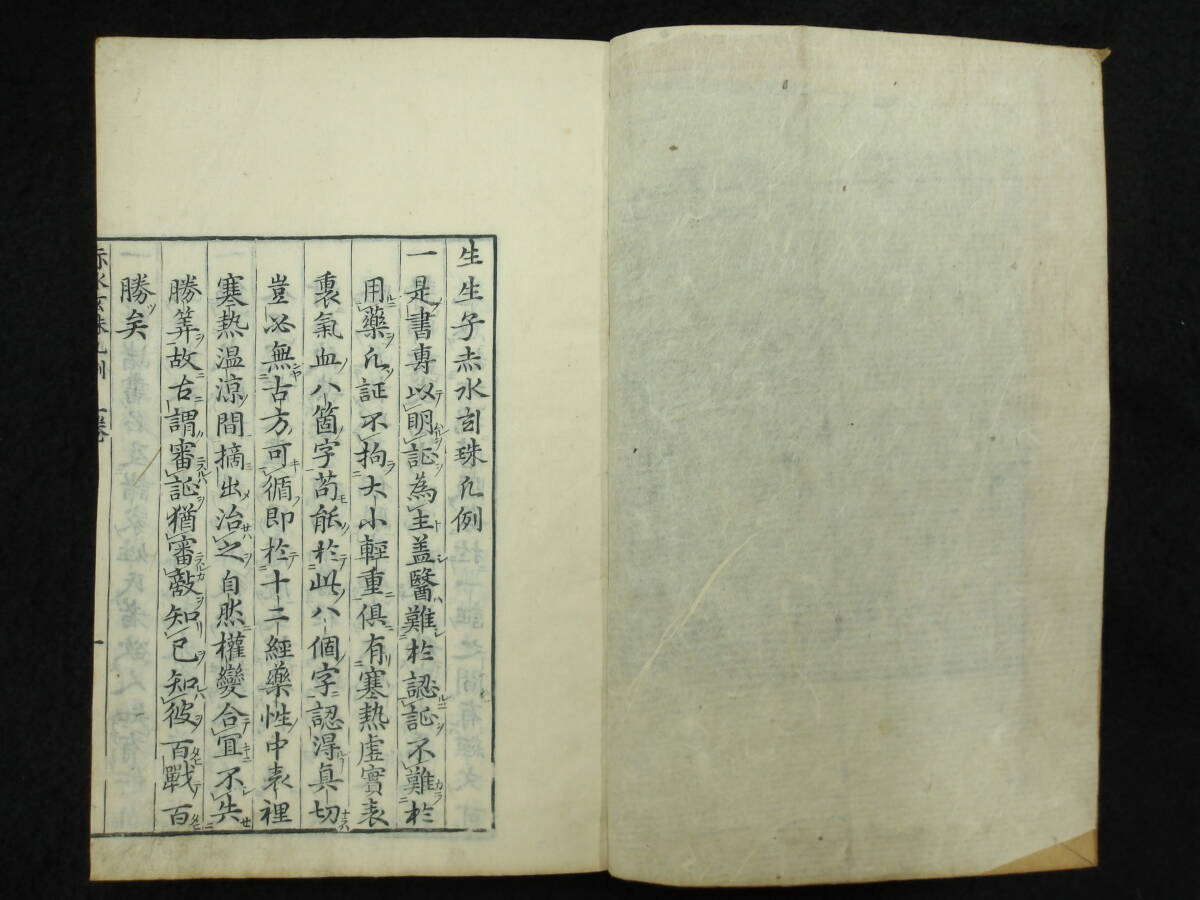 生生子赤水玄珠凡例
一是書專以明証為主盖醫難於認証不難於
用藥凡証不拘大小輕重俱有寒熱虛實表
裏氣血八箇字苟能於此八個字認得真切
豈必無古方可循即於十二經藥性中表裡
寒熱温涼間摘出治之自然權變合宜不失
勝筭故古謂審証猶審敵知己知彼百戰百
勝矣
赤水玄珠凡例
一